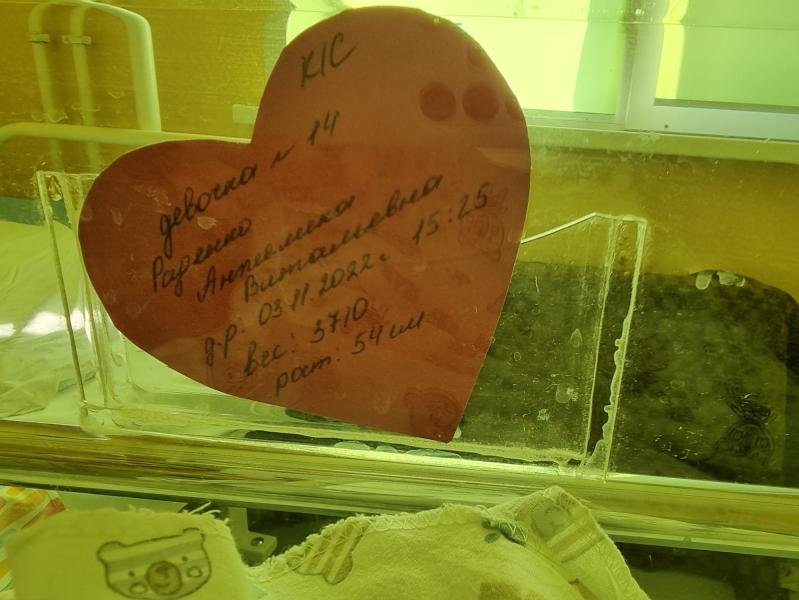 К/С
девочка № 14
Раденко
Анжелика
Витальевна
д.р: 03.11.2022г. 15:25
вес: 3710
рост: 54 см